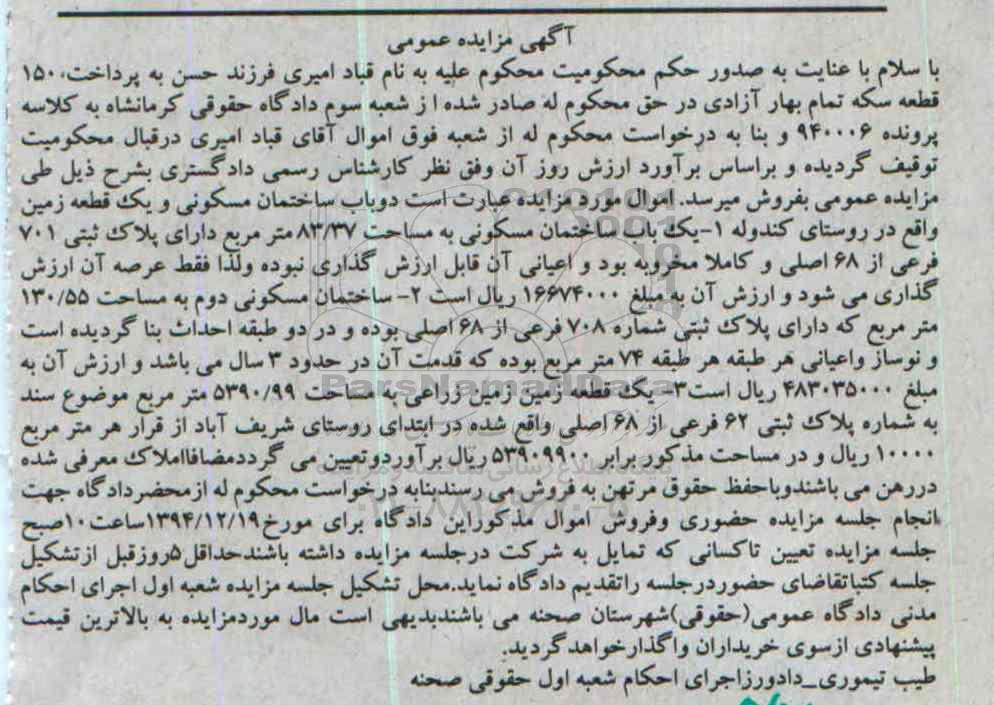 آگهی مزایده عمومی
با سلام با عنایت به صدور حکم محکومیت محکوم علیه به نام قباد امیری فرزند حسن به پرداخت، ۱۵۰
قطعه سکه تمام بهار آزادی در حق محکوم له صادر شده از شعبه سوم دادگاه حقوقی کرمانشاه به کلاسه
پرونده ۹۴۰۰۰۶ و بنا به درخواست محکوم له از شعبه فوق اموال آقای قباد امیری درقبال محکومیت
توقیف گردیده و براساس برآورد ارزش روز آن وفق نظر کارشناس رسمی دادگستری بشرح ذیل طی
مزایده عمومی بفروش میرسد. اموال مورد مزایده عبارت است دوباب ساختمان مسکونی و یک قطعه زمین
واقع در روستای کندوله ۱-یک باب ساختمان مسکونی به مساحت ۸۳/۳۷ متر مربع دارای پلاک ثبتی ۷۰۱
فرعی از ۶۸ اصلی و کاملا مخروبه بود و اعیانی آن قابل ارزش گذاری نبوده ولذا فقط عرصه آن ارزش
گذاری می شود و ارزش آن به مبلغ ۱۶۶۷۴۰۰۰ ریال است ۲- ساختمان مسکونی دوم به مساحت ۱۳۰/۵۵
متر مربع که دارای پلاک ثبتی شماره ۷۰۸ فرعی از ۶۸ اصلی بوده و در دو طبقه احداث بنا گردیده است
و نوساز واعیانی هر طبقه هر طبقه ۷۴ متر مربع بوده که قدمت آن در حدود ۳ سال می باشد و ارزش آن به
مبلغ ۴۸۳۰۳۵۰۰۰ ریال است۳- یک قطعه زمین زمین زراعی به مساحت ۵۳۹۰/۹۹ متر مربع موضوع سند
به شماره پلاک ثبتی ۶۲ فرعی از ۶۸ اصلی واقع شده در ابتدای روستای شریف آباد از قرار هر متر مربع
۱۰۰۰۰ ریال و در مساحت مذکور برابر ۵۳۹۰۹۹۰۰ ریال برآوردوتعیین می گرددمضافااملاک معرفی شده
دررهن می باشندوباحفظ حقوق مرتهن به فروش می رسندبنابه درخواست محکوم له ازمحضردادگاه جهت
انجام جلسه مزایده حضوری وفروش اموال مذکوراین دادگاه برای مورخ۱۳۹۴/۱۲/۱۹ساعت۱۰صبح
جلسه مزایده تعیین تاکسانی که تمایل به شرکت درجلسه مزایده داشته باشندحداقل۵روزقبل ازتشکیل
جلسه کتباتقاضای حضوردرجلسه راتقدیم دادگاه نماید.محل تشکیل جلسه مزایده شعبه اول اجرای احکام
مدنی دادگاه عمومی(حقوقی)شهرستان صحنه می باشندبدیهی است مال موردمزایده به بالاترین قیمت
پیشنهادی ازسوی خریداران واگذارخواهدگردید.
طیب تیموری_دادورزاجرای احکام شعبه اول حقوقی صحنه
ParsNamadData